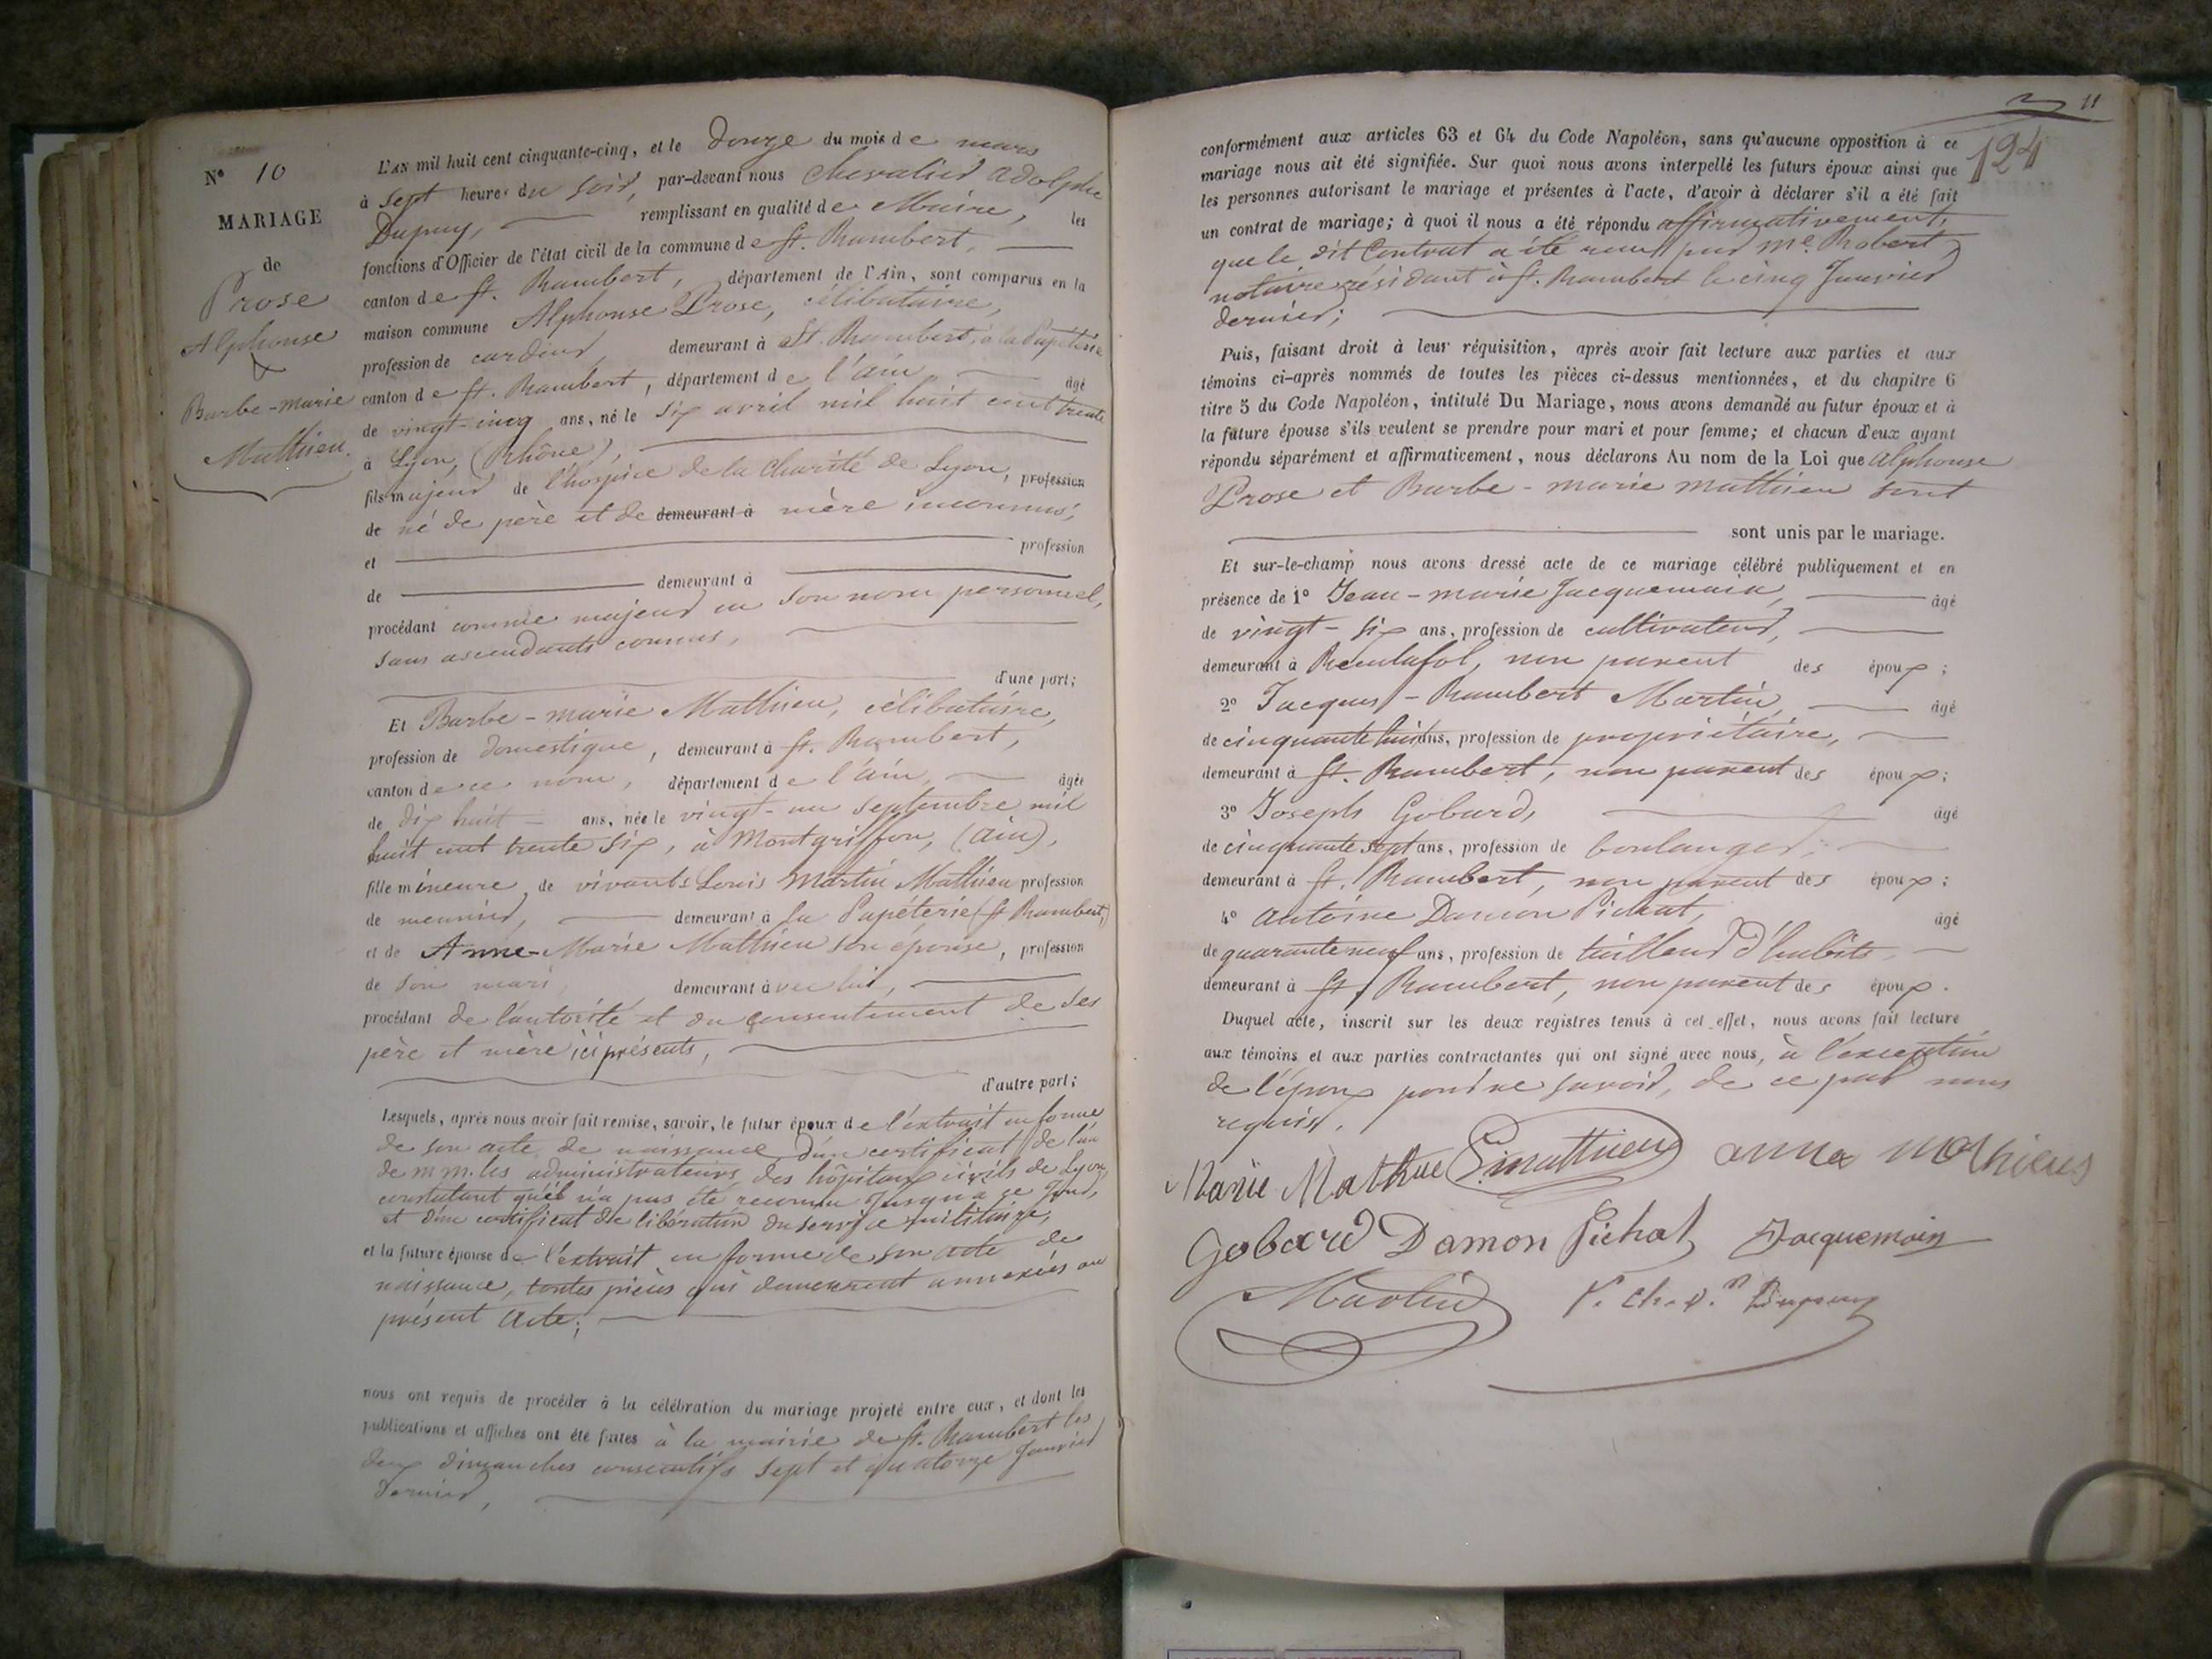 N° 10
MARIAGE
de
Prose
Alphonse
&
Barbe-marie
Mathieu.
L'AN mil huit cent cinquante-cinq, et le Douze du mois de mars
à sept heures du soir, par-devant nous Chevalier Adolphe
Dupuy, remplissant en qualité de Maire, les
fonctions d'Officier de l'état civil de la commune de St. Rambert,
canton de St. Rambert, département de l'Ain, sont comparus en la
maison commune Alphonse Prose, célibataire,
profession de cardeur, demeurant à St. Rambert, à la Papéterie
canton de St. Rambert, département de l'ain, âgé
de vingt-cinq ans, né le six avril mil huit cent trente
à Lyon, (Rhône),
fils majeur de l'hospice de la Charité de Lyon, profession
de né de père et de demeurant à mère inconnus,
et profession
de demeurant à
procédant comme majeur en son nom personnel,
sans ascendants connus,
d'une part;
Et Barbe-marie Mathieu, célibataire,
profession de domestique, demeurant à St. Rambert,
canton de ce nom, département de l'ain, âgée
de dix huit ans, née le vingt-un septembre mil
huit cent trente six, à Montgriffon, (ain),
fille mineure de vivants Louis Martin Mathieu profession
de meunier, demeurant à La Papéterie (St Rambert)
et de Anne-Marie Mathieu son épouse, profession
de son mari, demeurant avec lui,
procédant de l'autorité et du consentement de ses
père et mère ici présents,
d'autre part;
Lesquels, après nous avoir fait remise, savoir, le futur époux de l'extrait en forme
de son acte de naissance d'un certificat de l'un
de MM. les administrateurs des hôpitaux civils de Lyon,
constatant qu'il n'a pas été reconnu jusqu'à ce jour,
et d'un certificat de libération du service militaire,
et la future épouse de l'extrait en forme de son acte de
naissance, toutes pièces qui demeurent annexées au
présent acte;
nous ont requis de procéder à la célébration du mariage projeté entre eux, et dont les
publications et affiches ont été faites à la mairie de St. Rambert les
deux dimanches consécutifs sept et quatorze Janvier
dernier,
11
124
conformément aux articles 63 et 64 du Code Napoléon, sans qu'aucune opposition à ce
mariage nous ait été signifiée. Sur quoi nous avons interpellé les futurs époux ainsi que
les personnes autorisant le mariage et présentes à l'acte, d'avoir à déclarer s'il a été fait
un contrat de mariage; à quoi il nous a été répondu affirmativement,
que le dit Contrat a été reçu par Me. Robert,
notaire résidant à St. Rambert le cinq Janvier
dernier;
Puis, faisant droit à leur réquisition, après avoir fait lecture aux parties et aux
témoins ci-après nommés de toutes les pièces ci-dessus mentionnées, et du chapitre 6
titre 5 du Code Napoléon, intitulé Du Mariage, nous avons demandé au futur époux et à
la future épouse s'ils veulent se prendre pour mari et pour femme; et chacun d'eux ayant
répondu séparément et affirmativement, nous déclarons Au nom de la Loi que Alphonse
Prose et Barbe-marie mathieu sont
sont unis par le mariage.
Et sur-le-champ nous avons dressé acte de ce mariage célébré publiquement et en
présence de 1° Jean-marie Jacquemain, âgé
de vingt-six ans, profession de cultivateur,
demeurant à non parent des époux;
2° Jacques-Rambert Martin, âgé
de cinquante huit ans, profession de propriétaire,
demeurant à St. Rambert, non parent des époux;
3° Joseph Gobard, âgé
de cinquante sept ans, profession de boulanger,
demeurant à St. Rambert, non parent des époux;
4° antoine Damon Pichat, âgé
de quarante neuf ans, profession de tailleur d'habits,
demeurant à St. Rambert, non parent des époux.
Duquel acte, inscrit sur les deux registres tenus à cet effet, nous avons fait lecture
aux témoins et aux parties contractantes qui ont signé avec nous, à l'exception
de l'époux pour ne savoir, de ce par nous
requis.
Marie Mathieu L. mathieu anna mathieus
Gobard Damon Pichat Jacquemain
Martin Dupuy